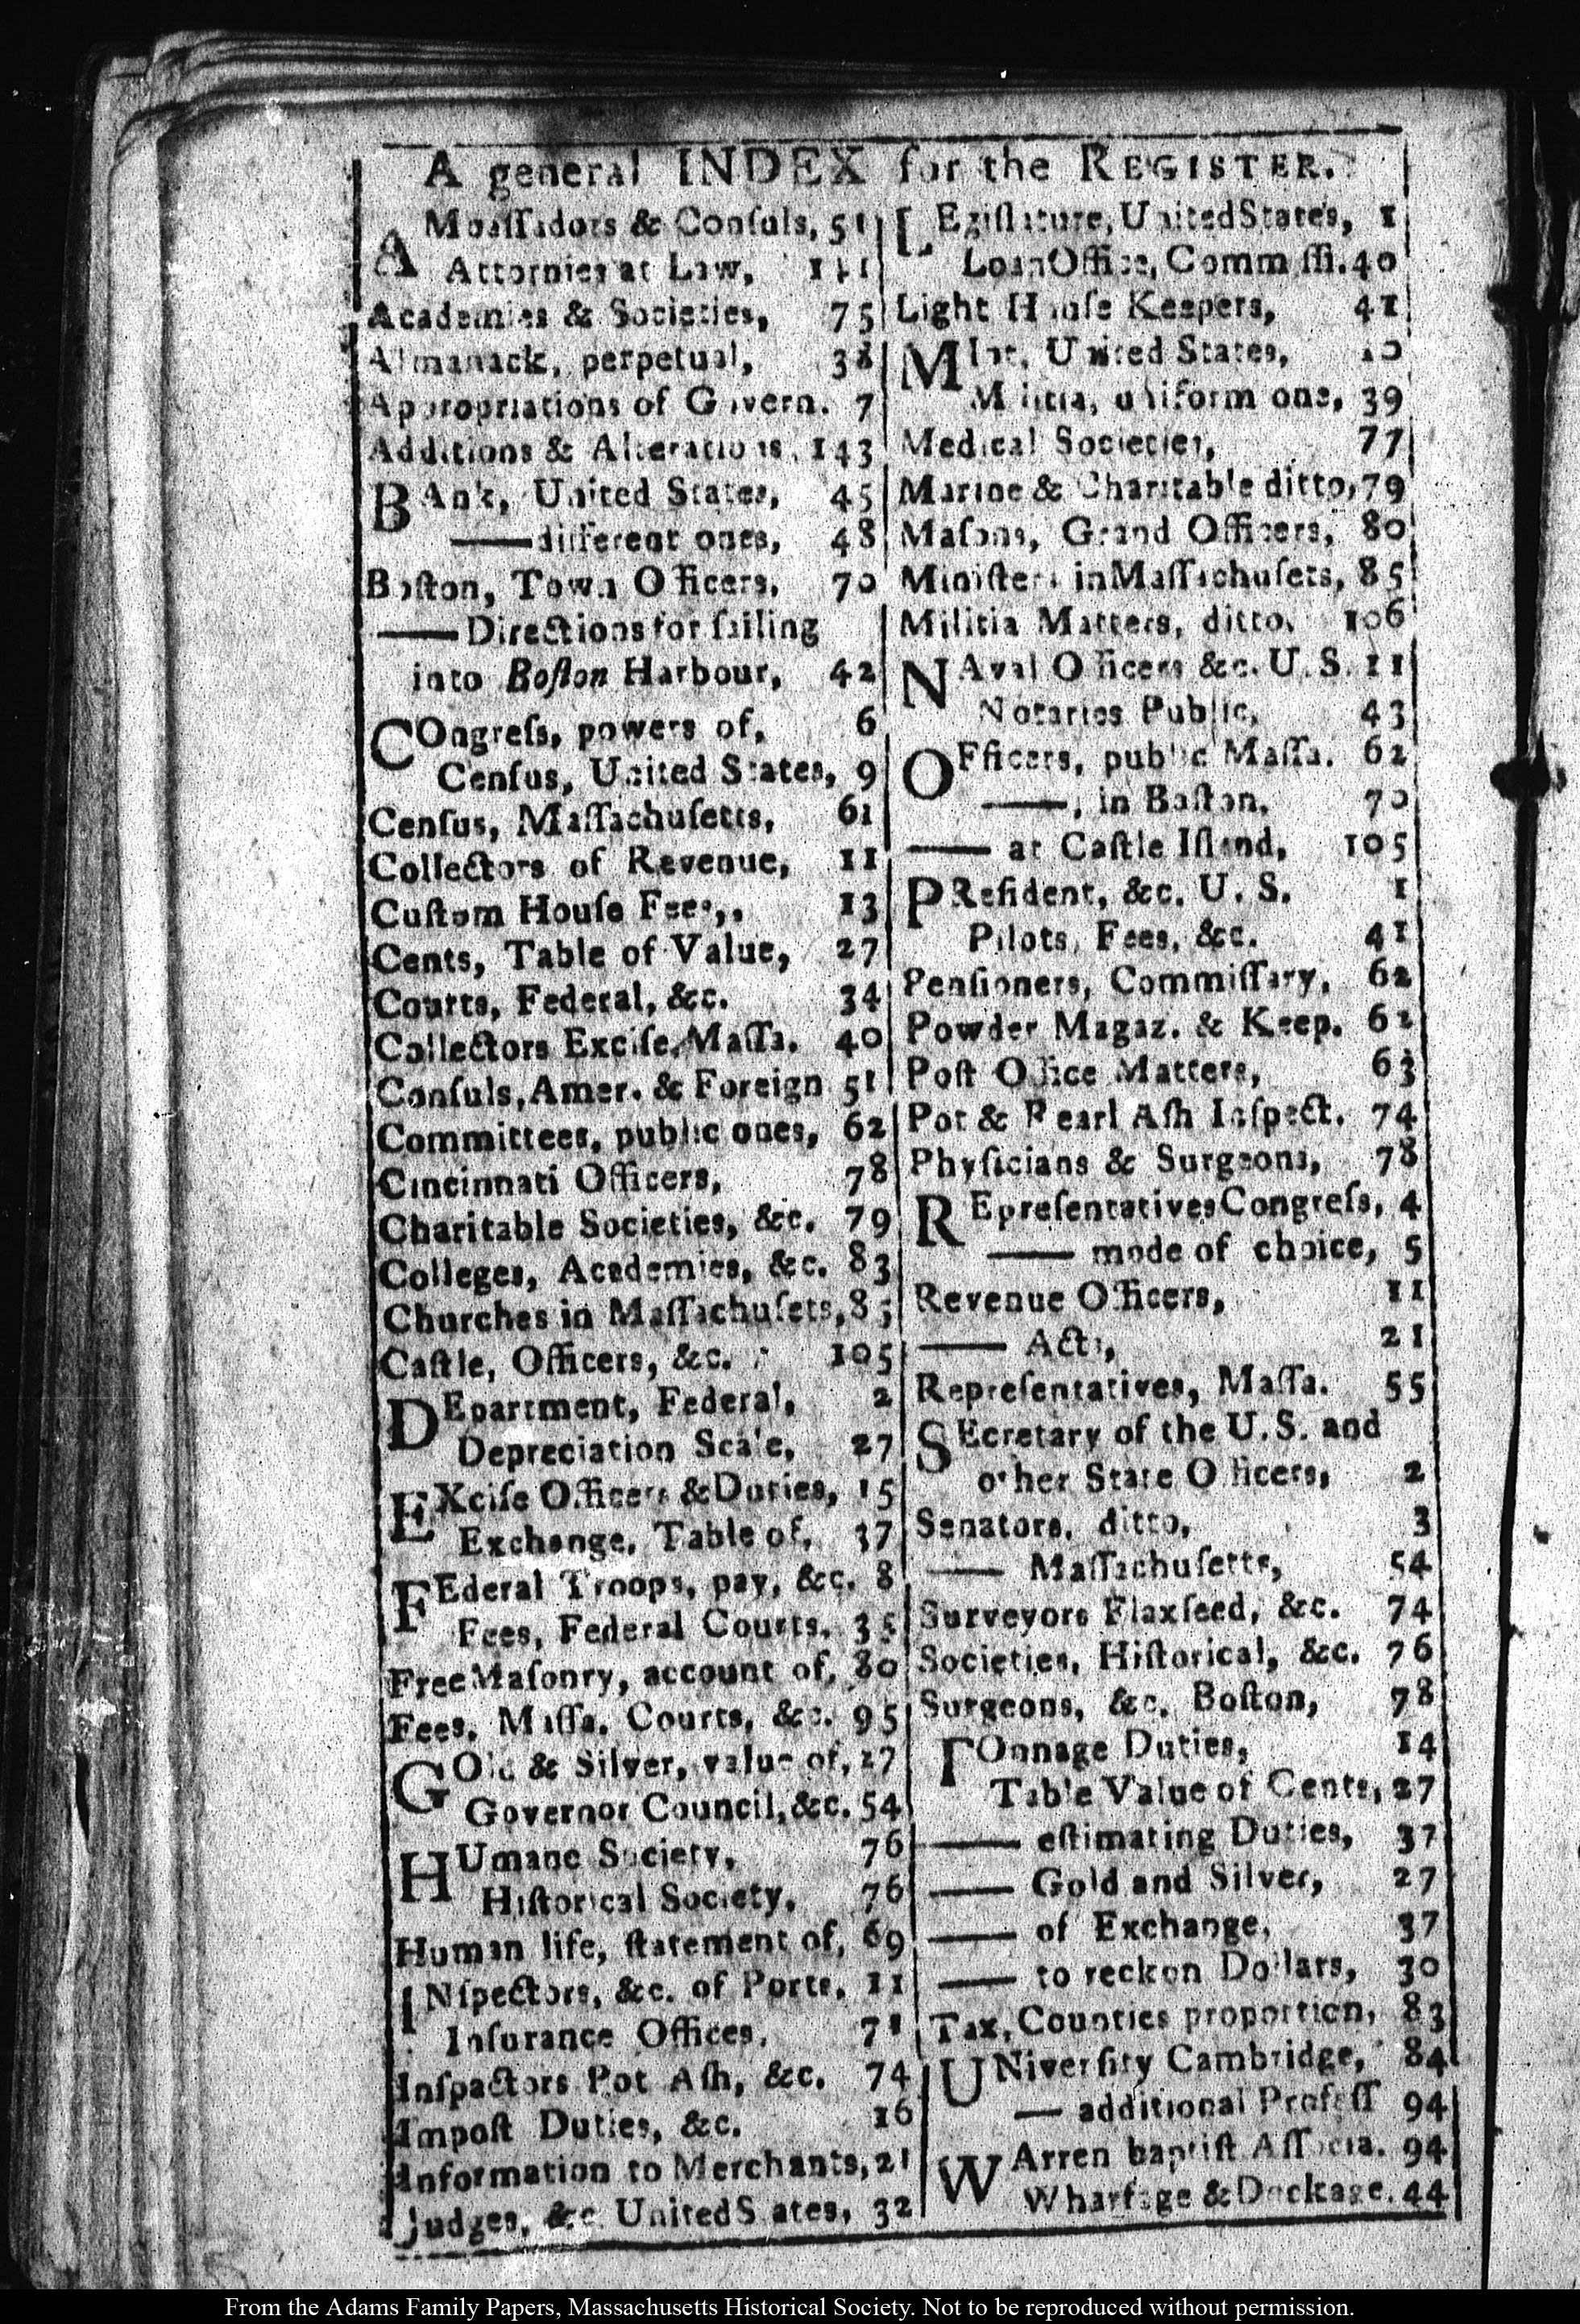 A general INDEX for the REGISTER.
AMbaſſadors & Conſuls, 51
Attornies at Law, 111
Academies & Societies, 75
Almanack, perpetual, 38
Appropriations of Govern. 7
Additions & Alterations, 143
BAnk, United States, 45
—— different ones, 48
Boſton, Town Officers, 70
—— Directions for ſailing
into Boſton Harbour, 42
COngreſs, powers of, 6
Cenſus, United States, 9
Cenſus, Maſſachuſetts, 61
Collectors of Revenue, 11
Cuſtom Houſe Fees,, 13
Cents, Table of Value, 27
Courts, Federal, &c. 34
Collectors Exciſe, Maſſa. 40
Conſuls, Amer. & Foreign 51
Committees, public ones, 62
Cincinnati Officers, 78
Charitable Societies, &c. 79
Colleges, Academies, &c. 83
Churches in Maſſachuſets, 85
Caſtle, Officers, &c. 105
DEpartment, Federal, 2
Depreciation Scale, 27
EXciſe Officers & Duties, 15
Exchange, Table of, 37
FEderal Troops, pay, &c. 8
Fees, Federal Courts, 35
Free Maſonry, account of, 80
Fees, Maſſa. Courts, &c. 95
GOld & Silver, value of, 27
Governor Council, &c. 54
HUmane Society, 76
Hiſtorical Society, 76
Human life, ſtatement of, 69
INſpectors, &c. of Ports, 11
Inſurance Offices, 71
Inſpactors Pot Aſh, &c. 74
Impoſt Duties, &c. 16
Information to Merchants, 21
Judges, &c United States, 32
LEgiſlature, United States, 1
Loan Office, Commiſſi. 40
Light Houſe Keepers, 41
MInt, United States, 10
Militia, uniform one, 39
Medical Societies, 77
Marine & Charitable ditto, 79
Maſons, Grand Officers, 80
Miniſters in Maſſachuſets, 85
Militia Matters, ditto, 106
NAval Officers &c. U.S. 11
Notaries Public, 43
OFficers, public Maſſa. 62
——, in Boſton, 70
—— at Caſtle Iſland, 105
PReſident, &c. U. S. 1
Pilots, Fees, &c. 41
Penſioners, Commiſſary, 62
Powder Magaz. & Keep. 62
Poſt Office Matters, 63
Pot & Pearl Aſh Inſpect. 74
Phyſicians & Surgeons, 78
REpreſentatives Congreſs, 4
—— mode of choice, 5
Revenue Officers, 11
—— Acts, 21
Repreſentatives, Maſſa. 55
SEcretary of the U.S. and
other State Officers, 2
Senators, ditto, 3
—— Maſſachuſetts, 54
Surveyors Flaxſeed, &c. 74
Societies, Hiſtorical, &c. 76
Surgeons, &c. Boſton, 78
TOnnage Duties, 14
Table Value of Cents, 27
—— eſtimating Duties, 37
—— Gold and Silver, 27
—— of Exchange, 37
—— to reckon Dollars, 30
Tax, Counties proportion, 83
UNiverſity Cambridge, 84
— additional Profeſſ 94
WArren baptiſt Aſſocia. 94
Wharfage & Dockage. 44
From the Adams Family Papers, Massachusetts Historical Society. Not to be reproduced without permission.